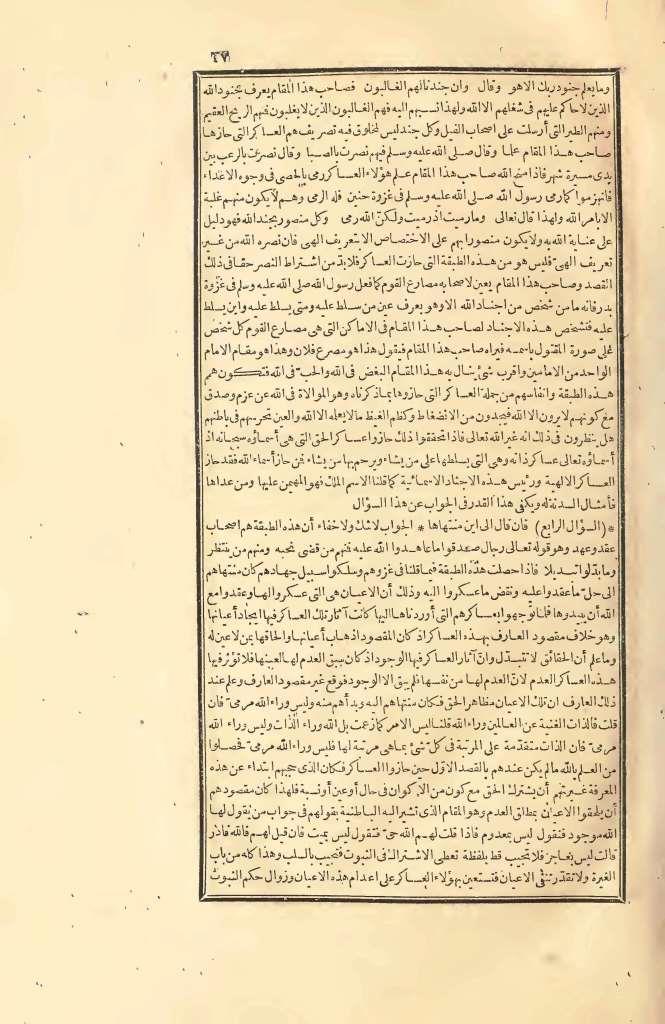 ٣٧
وما يعلم جنود ربك الا هو وقال وان جندنا لهم الغالبون فصاحب هذا المقام يعرف بجنود الله
الذين لا حاكم عليهم فى شغلهم الا الله ولهذا نسبهم اليه فهم الغالبون الذين لا يغلبون فمنهم الريح العقيم
ومنهم الطير التى أرسلت على اصحاب الفيل وكل جند ليس لمخلوق فيه تصريف هم العساكر التى حازها
صاحب هذا المقام علما وقال صلى الله عليه وسلم فيهم نصرت بالصبا وقال نصرت بالرعب بين
يدى مسيرة شهر فاذا منح الله صاحب هذا المقام علم هؤلاء العساكر رمى بالحصى فى وجوه الاعداء
فانهزموا كما رمى رسول الله صلى الله عليه وسلم فى غزوة حنين فله الرمى وهم لا يكون منهم غلبة
الا بامر الله ولهذا قال تعالى وما رميت اذ رميت ولكن الله رمى وكل منصور بجند الله فهو دليل
على عناية الله به ولا يكون منصورا بهم على الاختصاص الا بتعريف الهى فان نصره الله من غير
تعريف الهى فليس هو من هذه الطبقة التى حازت العساكر فلا بد من اشتراط النصر حقا فى ذلك
القصد وصاحب هذا المقام يعين لاصحابه مصارع القوم كما فعل رسول الله صلى الله عليه وسلم فى غزوة
بدر فانه ما من شخص من اجناد الله الا وهو يعرف عين من سلط عليه ومتى يسلط عليه واين يسلط
عليه فتشخص هذه الاجناد لصاحب هذا المقام فى الاماكن التى هى مصارع القوم كل شخص
على صورة المقتول باسمه فيراه صاحب هذا المقام فيقول هذا هو مصرع فلان وهذا هو مقام الامام
الواحد من الامامين واقرب شئ ينال به هذا المقام البغض فى الله والحب فى الله فتكون همم
هذه الطبقة وانفاسهم من جملة العساكر التى حازوها بما ذكرناه وهو الموالاة فى الله عن عزم وصدق
مع كونهم لا يرون الا الله فيجدون من الانضغاط وكظم الغيظ ما لا يعلمه الا الله والعين تحرسهم فى باطنهم
هل ينظرون فى ذلك انه غير الله تعالى فاذا تحققوا ذلك حازوا عساكر الحق التى هى أسماؤه سبحانه اذ
أسماؤه تعالى عساكر ذاته وهى التى يسلطها على من يشاء ويرحم بها من يشاء فمن حاز أسماء الله فقد حاز
العساكر الالهية ورئيس هذه الاجناد الاسمائية كما قلنا الاسم الملك فهو المهيمن عليها ومن عداها
فأمثال السدنة له ويكفى هذا القدر فى الجواب عن هذا السؤال
* (السؤال الرابع) فان قال الى اين منتهاها * الجواب لا شك ولا خفاء أن هذه الطبقة هم اصحاب
عقد وعهد وهو قوله تعالى رجال صدقوا ما عاهدوا الله عليه فمنهم من قضى نحبه ومنهم من ينتظر
وما بدلوا تبديلا فاذا حصلت هذه الطبقة فيما قلنا فى غزوهم وسلكوا سبيل جهادهم كان منتهاهم
الى حل ما عقدوا عليه ونقض ما عسكروا اليه وذلك أن الاعيان هى التى عسكروا الها وعقدوا مع
الله أن يبيدوها فلما توجهوا بعساكرهم التى أوردناها اليها كانت آثار تلك العساكر فيها ايجاد أعيانها
وهو خلاف مقصود العارف بهذه العساكر اذ كان المقصود اذهاب أعيانها والحاقها بمن لا عين له
وما علم أن الحقائق لا تتبدل وان آثار العساكر فيها الوجود اذ كان سبق العدم لها لعينها فلا تؤثر فيها
هذه العساكر العدم لان العدم لها من نفسها فلم يبق الا الوجود فوقع غير مقصود العارف وعلم عند
ذلك العارف ان تلك الاعيان مظاهر الحق فكان منتهاهم اليه وبدأهم منه وليس وراء الله مرمى فان
قلت فالذات الغنية عن العالمين وراء الله قلنا ليس الامر كما زعمت بل الله وراء الذات وليس وراء الله
مرمى فان الذات متقدمة على المرتبة فى كل شئ بما هى مرتبة لها فليس وراء الله مرمى فحصلوا
من العلم بالله ما لم يكن عندهم بالقصد الاول حين حازوا العساكر فكان الذى حجبهم ابتداء عن هذه
المعرفة غيرتهم أن يشترك الحق مع كون من الاكوان فى حال أو عين أو نسبة فلهذا كان مقصودهم
أن يلحقوا الاعيان بمطلق العدم وهو المقام الذى تشير اليه الباطنية بقولهم فى جواب من يقول لها
الله موجود فتقول ليس بمعدوم فاذا قلت لهم الله حى فتقول ليس بميت فان قيل لهم فالله قادر
قالت ليس بعاجز فلا تجيب قط بلفظة تعطى الاشتراك فى الثبوت فتجيب بالسلب وهذا كله من باب
الغيرة ولا تقدر تنفى الاعيان فتستعين بهؤلاء العساكر على اعدام هذه الاعيان وزوال حكم الثبوت